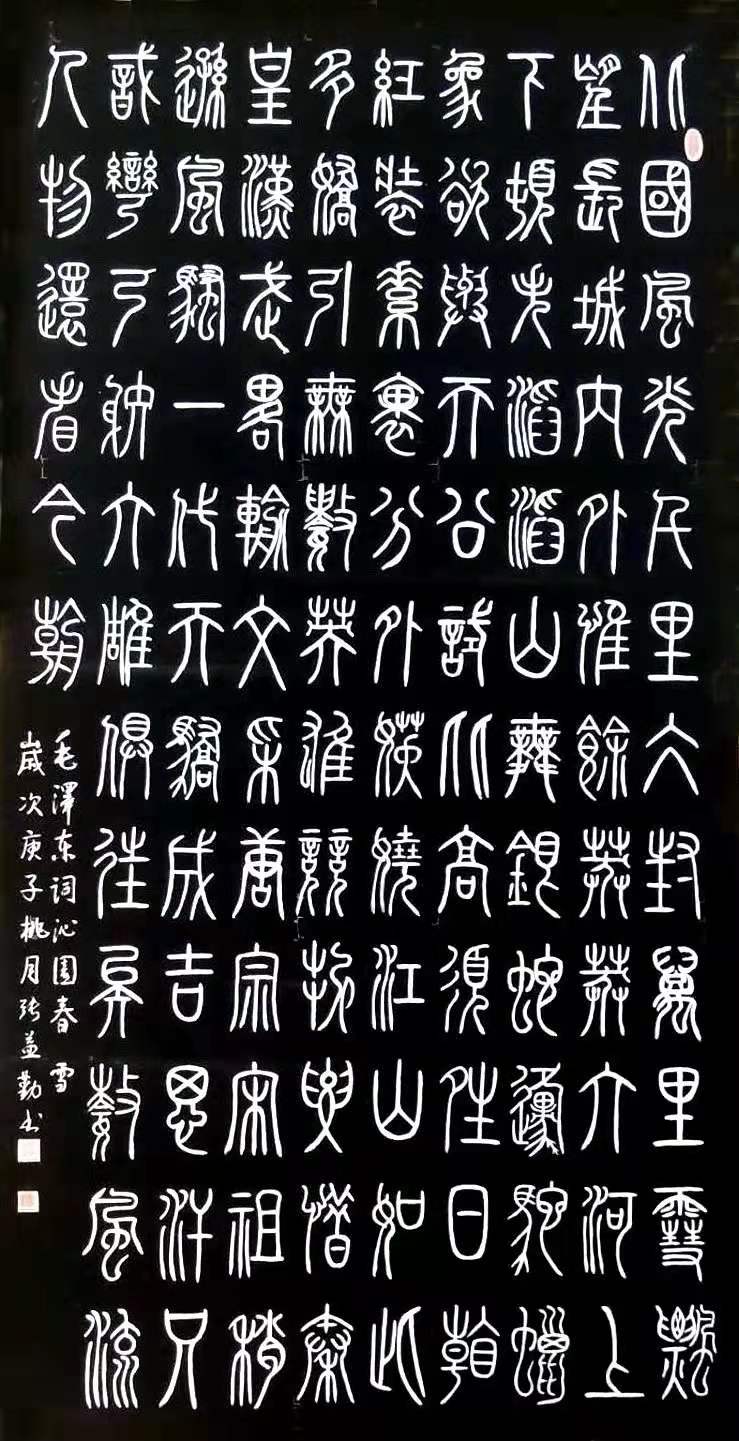 北國風光千里冰封萬里雪飄
望長城內外惟餘莽莽大河上
下頓失滔滔山舞銀蛇原馳蠟
象欲與天公試比高須晴日看
紅裝素裹分外妖嬈江山如此
多嬌引無數英雄競折腰惜秦
皇漢武略輸文采唐宗宋祖稍
遜風騷一代天驕成吉思汗只
識彎弓射大雕俱往矣數風流
人物還看今朝
毛澤东词沁園春 雪
歲次庚子桃月张益勤书